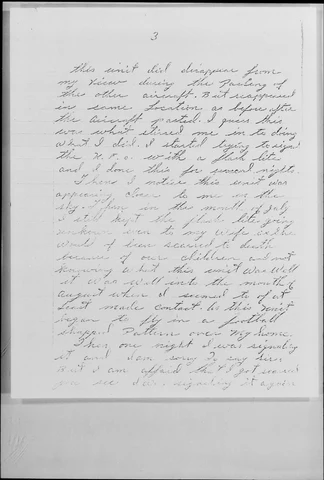 3
this unit did disappear from
my view during the Passing of
the other aircraft. But reappeared
in same Location as before after
the aircraft passed. I guess this
was what stirred me in to doing
what I did. I started trying to signal
the U.F.O. with a flash lite
and I done this for several nights.
Then I notice this unit was
appearing closer to me in the
sky. I am in this month of July
I still kept the flash lite going
unknown even to my wife as she
would of been scared to death
because of our children and not
knowing what this unit was. Well
it was well into the month of
August when I seemed to of at
Least made contact. As this unit
began to fly in a football
shapped Pattern over my home.
Then one night I was signaling
it and I am sorry to say Sirs
But I am affraid that I got scared
you see I was signaling it again